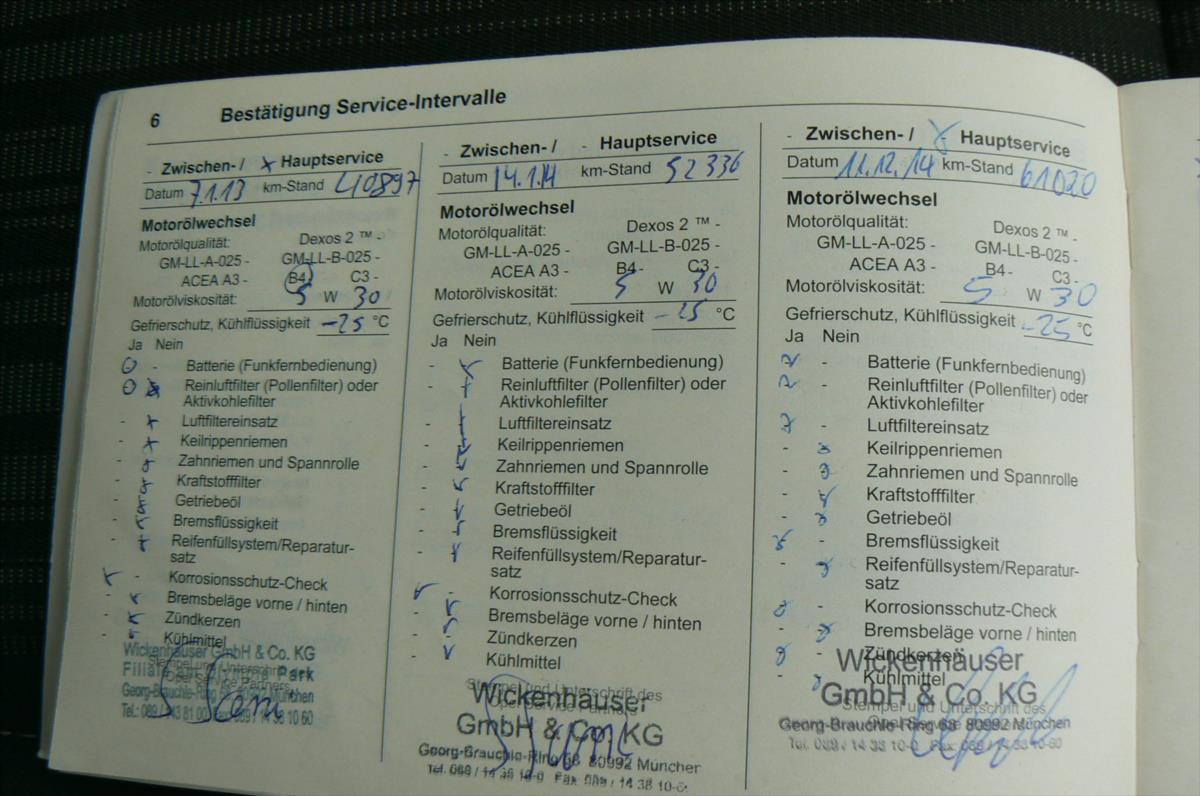 6 Bestätigung Service-Intervalle
- Zwischen- / x Hauptservice
Datum 7.1.13 km-Stand 40897
Motorölwechsel
Motorölqualität: Dexos 2 ™ -
GM-LL-A-025 - GM-LL-B-025 -
ACEA A3 - B4 C3 -
Motorölviskosität: 5 W 30
Gefrierschutz, Kühlflüssigkeit -25 °C
Ja Nein
Batterie (Funkfernbedienung)
Reinluftfilter (Pollenfilter) oder
Aktivkohlefilter
Luftfiltereinsatz
Keilrippenriemen
Zahnriemen und Spannrolle
Kraftstofffilter
Getriebeöl
Bremsflüssigkeit
Reifenfüllsystem/Reparatur-
satz
Korrosionsschutz-Check
Bremsbeläge vorne / hinten
Zündkerzen
Kühlmittel
Wickenhäuser GmbH & Co. KG
Filiale am Olympia Park
Georg-Brauchle-Ring 68 80992 München
- Zwischen- / - Hauptservice
Datum 14.1.14 km-Stand 52336
Motorölwechsel
Motorölqualität: Dexos 2 ™ -
GM-LL-A-025 - GM-LL-B-025 -
ACEA A3 - B4 - C3 -
Motorölviskosität: 5 W 30
Gefrierschutz, Kühlflüssigkeit -25 °C
Ja Nein
Batterie (Funkfernbedienung)
Reinluftfilter (Pollenfilter) oder
Aktivkohlefilter
Luftfiltereinsatz
Keilrippenriemen
Zahnriemen und Spannrolle
Kraftstofffilter
Getriebeöl
Bremsflüssigkeit
Reifenfüllsystem/Reparatur-
satz
Korrosionsschutz-Check
Bremsbeläge vorne / hinten
Zündkerzen
Kühlmittel
Stempel und Unterschrift des
Wickenhäuser
GmbH & Co. KG
Georg-Brauchle-Ring 68 80992 München
Tel. 089 / 14 38 10-0 Fax 089 / 14 38 10-
- Zwischen- / x Hauptservice
Datum 11.12.14 km-Stand 61020
Motorölwechsel
Motorölqualität: Dexos 2 ™ -
GM-LL-A-025 - GM-LL-B-025 -
ACEA A3 - B4 - C3 -
Motorölviskosität: 5 W 30
Gefrierschutz, Kühlflüssigkeit -25 °C
Ja Nein
Batterie (Funkfernbedienung)
Reinluftfilter (Pollenfilter) oder
Aktivkohlefilter
Luftfiltereinsatz
Keilrippenriemen
Zahnriemen und Spannrolle
Kraftstofffilter
Getriebeöl
Bremsflüssigkeit
Reifenfüllsystem/Reparatur-
satz
Korrosionsschutz-Check
Bremsbeläge vorne / hinten
Zündkerzen
Kühlmittel
Wickenhäuser
GmbH & Co. KG
Stempel und Unterschrift des
Georg-Brauchle-Ring 68 80992 München
Tel. 089 / 14 38 10-0 Fax 089 / 14 38 10-60